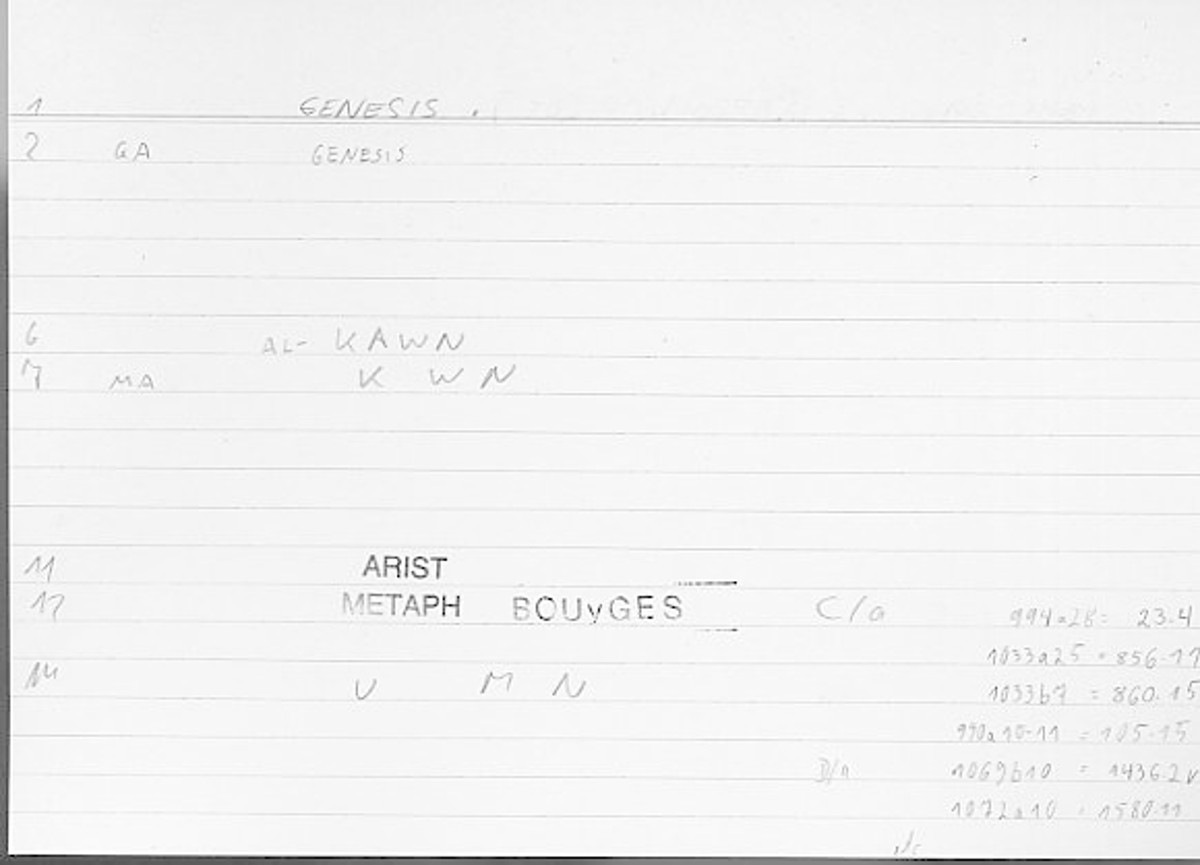 1 GENESIS .
2 GA GENESIS
6 AL- KAWN
7 MA K WN
11 ARIST
12 METAPH BOUyGES C/a 994a28= 23.4
1033a25 = 856.11
14 U M N 1033b7 = 860.15
990a10-11 = 105.15
D/a 1069b10 = 1436.2v
1072a10 = 1580.11